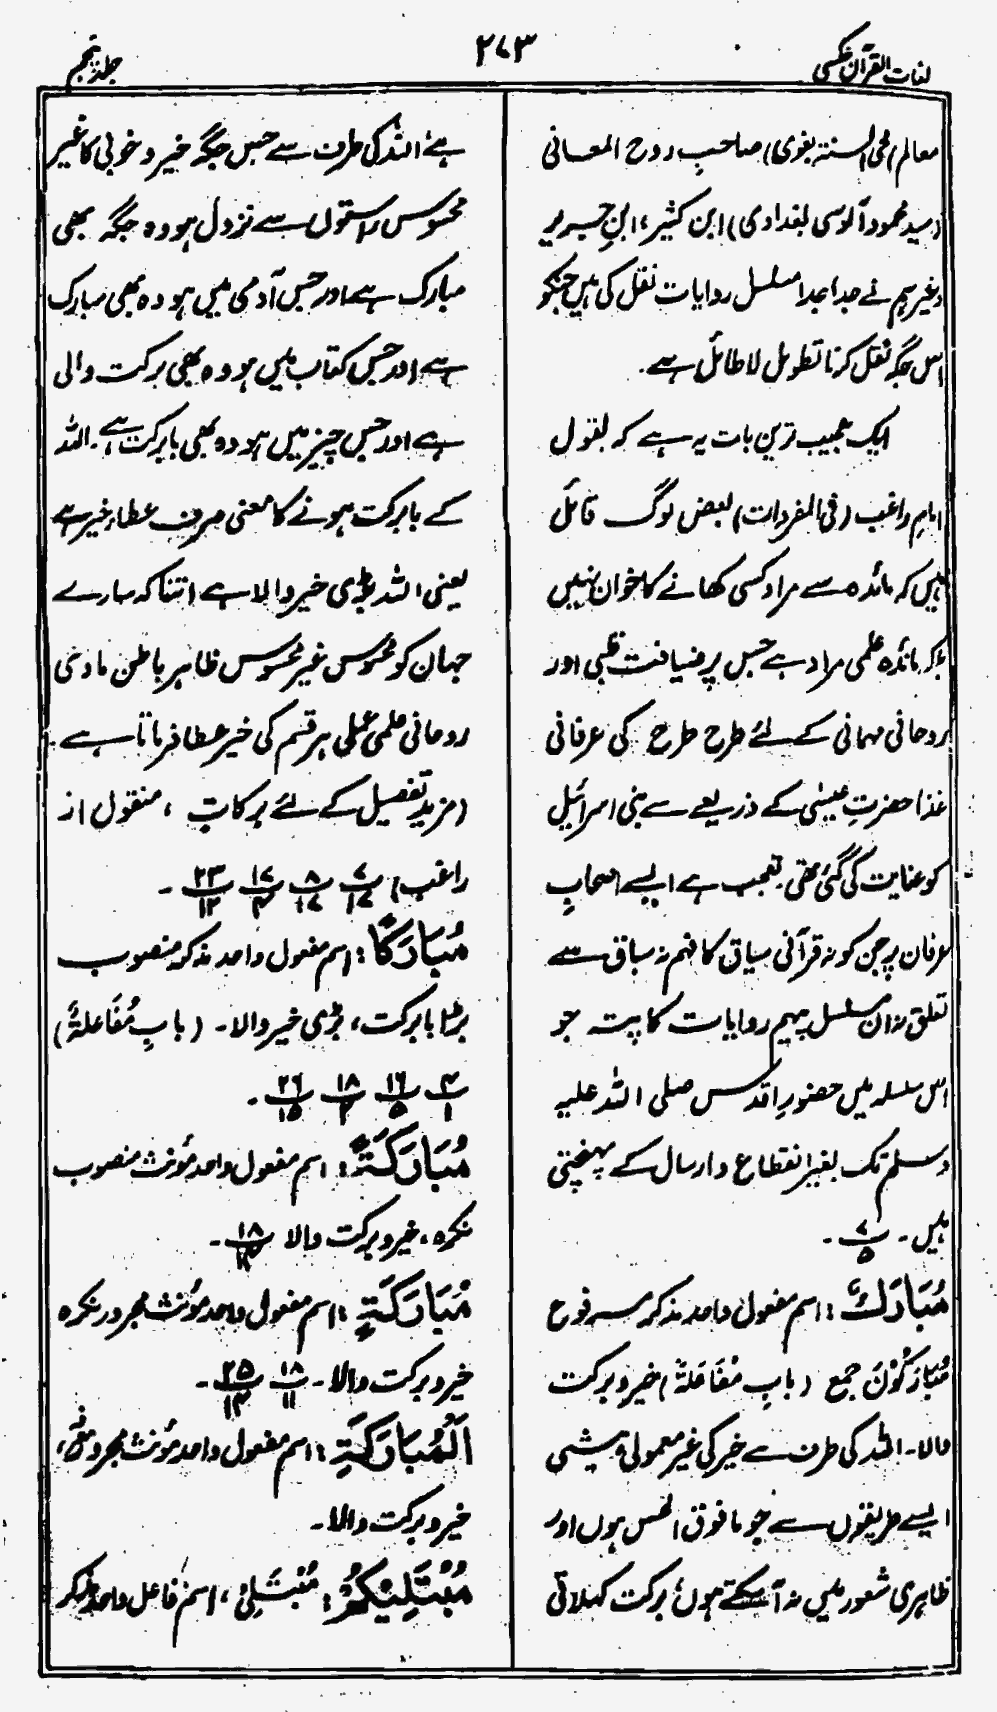 لغات القرآن عکسی
۲۷۳
جلد پنجم
معالم (محی السنۃ بغوی) صاحبِ روح المعانی
(سید محمود آلوسی بغدادی) ابن کثیر، ابنِ جریر
وغیرہم نے جدا جدا مسلسل روایات نقل کی ہیں جنکو
اس جگہ نقل کرنا تطویل لا طائل ہے۔
ایک عجیب ترین بات یہ ہے کہ بقول
امامِ راغب (فی المفردات) بعض لوگ قائل
ہیں کہ مائدہ سے مراد کسی کھانے کا خوان نہیں
بلکہ مائدہ علمی مراد ہے جس پر ضیافت قلبی اور
روحانی مہمانی کے لئے طرح طرح کی عرفانی
غذا حضرتِ عیسٰی کے ذریعے سے بنی اسرائیل
کو عنایت کی گئی تھی۔ تعجب ہے ایسے اصحابِ
عرفان پر جن کو نہ قرآنی سیاق کا فہم نہ سباق سے
تعلق نہ ان مسلسل پیہم روایات کا پتہ جو
اس سلسلہ میں حضورِ اقدس صلی اللہ علیہ
وسلم تک بغیر انقطاع و ارسال کے پہنچتی
ہیں۔ ۷/۵۔
مُبَارَكٌ: اسم مفعول واحد مذکر مرفوع
مُبَارَکُوْنَ جمع (بابِ مُفَاعَلَۃ) خیر و برکت
والا۔ اللہ کی طرف سے خیر کی غیر معمولی بیشی
ایسے طریقوں سے جو مافوق الحس ہوں اور
ظاہری شعور میں نہ آ سکتے ہوں، برکت کہلاتی
ہے، اللہ کی طرف سے جس جگہ خیر و خوبی کا غیر
محسوس راستوں سے نزول ہو وہ جگہ بھی
مبارک ہے اور جس آدمی میں ہو وہ بھی مبارک
ہے اور جس کتاب میں ہو وہ بھی برکت والی
ہے اور جس چیز میں ہو وہ بھی بابرکت ہے۔ اللہ
کے بابرکت ہونے کا معنی صرف عطاء خیر ہے
یعنی اللہ بڑی خیر والا ہے اتنا کہ سارے
جہان کو محسوس غیر محسوس ظاہر باطن مادی
روحانی علمی عملی ہر قسم کی خیر عطا فرماتا ہے۔
(مزید تفصیل کے لئے برکات، منقول از
راغب) ۷/۱۷ ۸/۱۷ ۱۷/۴ ۲۳/۱۲۔
مُبَارَكًا: اسم مفعول واحد مذکر منصوب
بڑا بابرکت، بڑی خیر والا۔ (بابِ مُفَاعَلَۃ)
۴/۱ ۱۶/۵ ۱۸/۲ ۲۶/۱۵۔
مُبَارَكَةً: اسم مفعول واحد مؤنث منصوب
نکرہ، خیر و برکت والا ۱۸/۱۴۔
مُبَارَكَةٍ: اسم مفعول واحد مؤنث مجرور نکرہ
خیر و برکت والا۔ ۱۸/۱۱ ۲۵/۱۴۔
اَلْمُبَارَكَةِ: اسم مفعول واحد مؤنث مجرور معرفہ،
خیر و برکت والا۔
مُبْتَلِیْکُمْ: مُبْتَلِیْ، اسم فاعل واحد مذکر